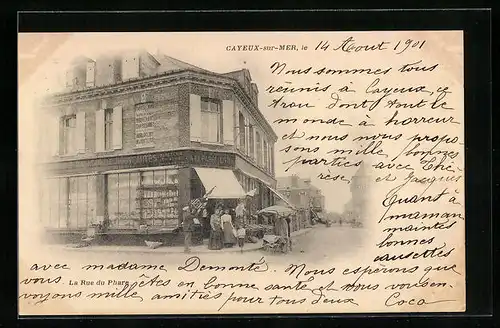 CAYEUX-sur-MER, le 14 Août 1901
Nous sommes tous
réunis à Cayeux, ce
trou dont tout le
monde à horreur
et nous nous propo-
sons mille bonnes
parties avec Thé-
rèse et Jacques
Quant à
maman
maintes
bonnes
causettes
avec madame Demonté. Nous espérons que
vous êtes en bonne santé et nous vous en-
La Rue du Phare
voyons mille amitiés pour tous deux
Coca